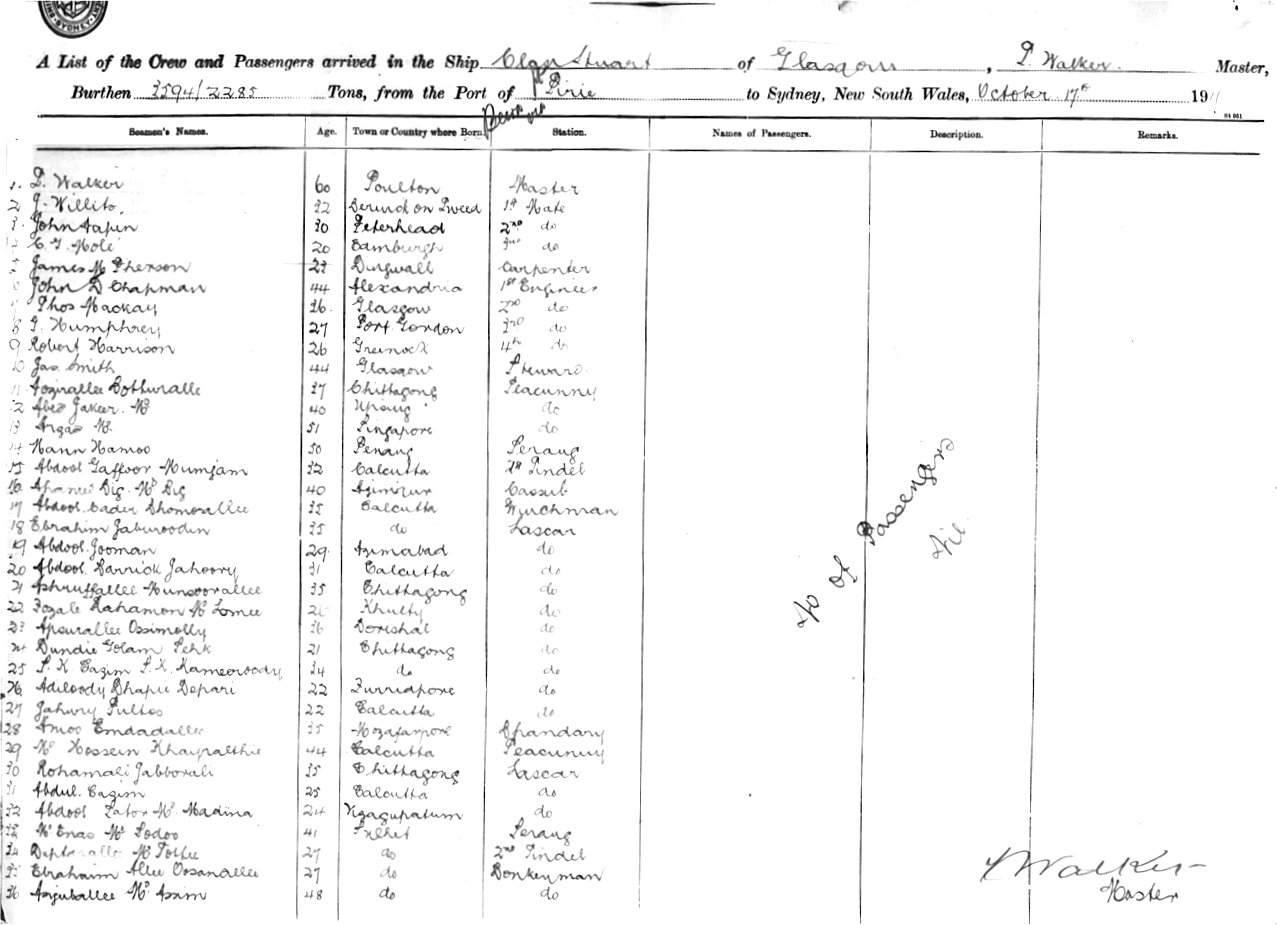 SYDNEY
A List of the Crew and Passengers arrived in the Ship Clan Stuart of Glasgow, P. Walker. Master,
Burthen 3594/2285 Tons, from the Port of Pt Pirie to Sydney, New South Wales, October 17th 191
S4 951
Seamen's Names. Age. Town or Country where Born. Station. Names of Passengers. Description. Remarks.
1. P. Walker 60 Poulton Master
2 J. Willits, 32 Berwick on Tweed 1st Mate
3. John 30 Peterhead 2nd do
4 C. T. Mole 20 Edinburgh 3rd do
5 James McPherson 23 Dingwall Carpenter
6 John D Chapman 44 Alexandria 1st Engineer
7 Thos Mackay 36. Glasgow 2nd do
8 J. Humphrey 27 Port Gordon 3rd do
9 Robert Harrison 26 Greenock 4th do
10 Jas Smith 44 Glasgow Steward
11 Fozirallee Bothuralle 37 Chittagong Seacunny
12 Abed Jakeer. Md 40 do
13 Md. 51 Singapore do
14 Mann Hamoo 50 Penang Serang
15 Abdool Gaffoor Mumjam 32 Calcutta 1st Tindel
16 Big. Md Big 40 Cassub
17 Abdool Cader Dhomorallee 35 Calcutta Winchman
18 Ebrahim Jaburoodin 35 do Lascar
19 Abdool Jooman 29 Azimabad do
20 Abdool Barrick Jahoory 31 Calcutta do
21 Ashruffallee Munsoorallee 35 Chittagong do
22 Fozale Rahamon Md Lomee 21 Khulty do
23 Apsurallee Ossimolly 36 Borishal do
24 Dundie Golam Sehk 21 Chittagong do
25 S. K. Cazim S. K. Kameoroody 34 do do
26 Adiloody Dhapie Depari 22 Furridpore do
27 Jahury Pultoo 22 Calcutta do
28 Amoo Emdadallee 35 Mozafarpore Bhandary
29 Md Hossein Khayralthie 44 Calcutta Seacunny
30 Rohamali Jabborali 35 Chittagong Lascar
31 Abdul. Cazim 25 Calcutta do
32 Abdool Md Madina 24 Ngagupatum do
33 Md Enas Md Sodoo 41 Silhet Serang
34 Md 27 do 2nd Tindel
35 Ebrahaim Allee Oosanallee 27 do Donkeyman
36 Asjuballee Md Asim 48 do do
No of Passengers
Nil
P Walker
Master